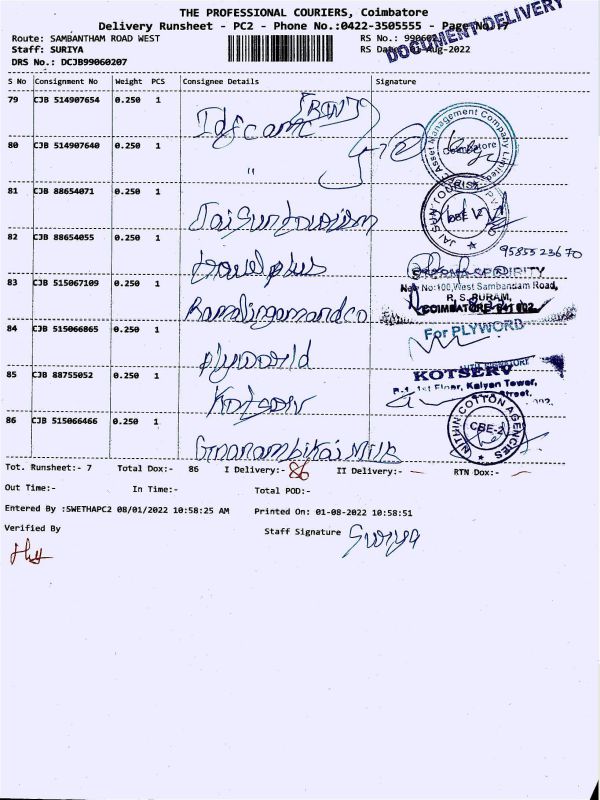 THE PROFESSIONAL COURIERS, Coimbatore
Delivery Runsheet - PC2 - Phone No.:0422-3505555 - Page No.
DOCUMENT DELIVERY
Route: SAMBANTHAM ROAD WEST
RS No.:
Staff: SURIYA
RS Aug-2022
DRS No.: DCJB99060207
S No Consignment No Weight PCS Consignee Details Signature
79 CJB 514907654 0.250 1 Idfcamc
80 CJB 514907640 0.250 1 "
Asset Management Company Limited
Coimbatore
81 CJB 88654071 0.250 1 Jaisuntourism
JAI SUN
82 CJB 88654055 0.250 1 travelplus
9585523670
83 CJB 515067109 0.250 1 Ramalingamandco
New No:100,West Sambandam Road,
R. S. PURAM,
COIMBATORE-641 002
84 CJB 515066865 0.250 1 plyworld
For PLYWORD
85 CJB 88755052 0.250 1 Kotserv
KOTSERV
1st Floor, Kalyan Tower,
Street.
86 CJB 515066466 0.250 1 Gnanambikai Milk
NITHIN COTTON AGENCIES
CBE-2
Tot. Runsheet:- 7 Total Dox:- 86 I Delivery:- 86 II Delivery:- — RTN Dox:- —
Out Time:- In Time:- Total POD:-
Entered By :SWETHAPC2 08/01/2022 10:58:25 AM Printed On: 01-08-2022 10:58:51
Verified By
Staff Signature Suriya